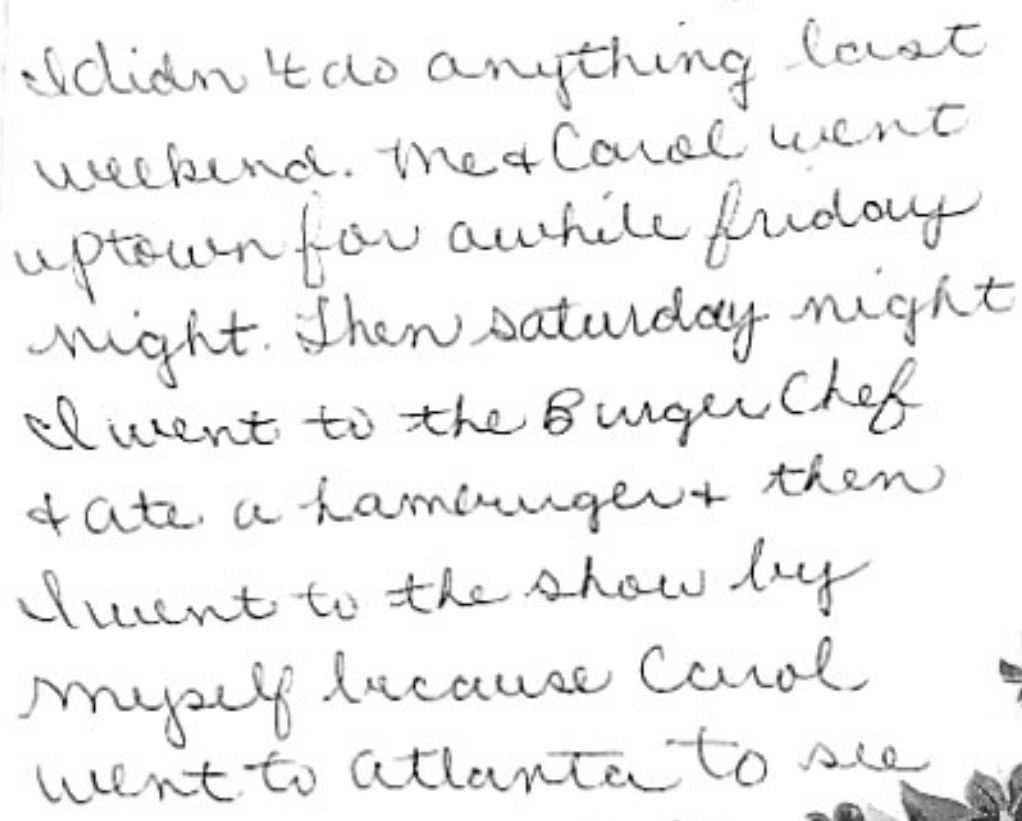 I didn't do anything last
weekend. Me & Carol went
uptown for awhile friday
night. Then saturday night
I went to the Burger Chef
& ate a hamburger & then
I went to the show by
myself because Carol
went to atlanta to see